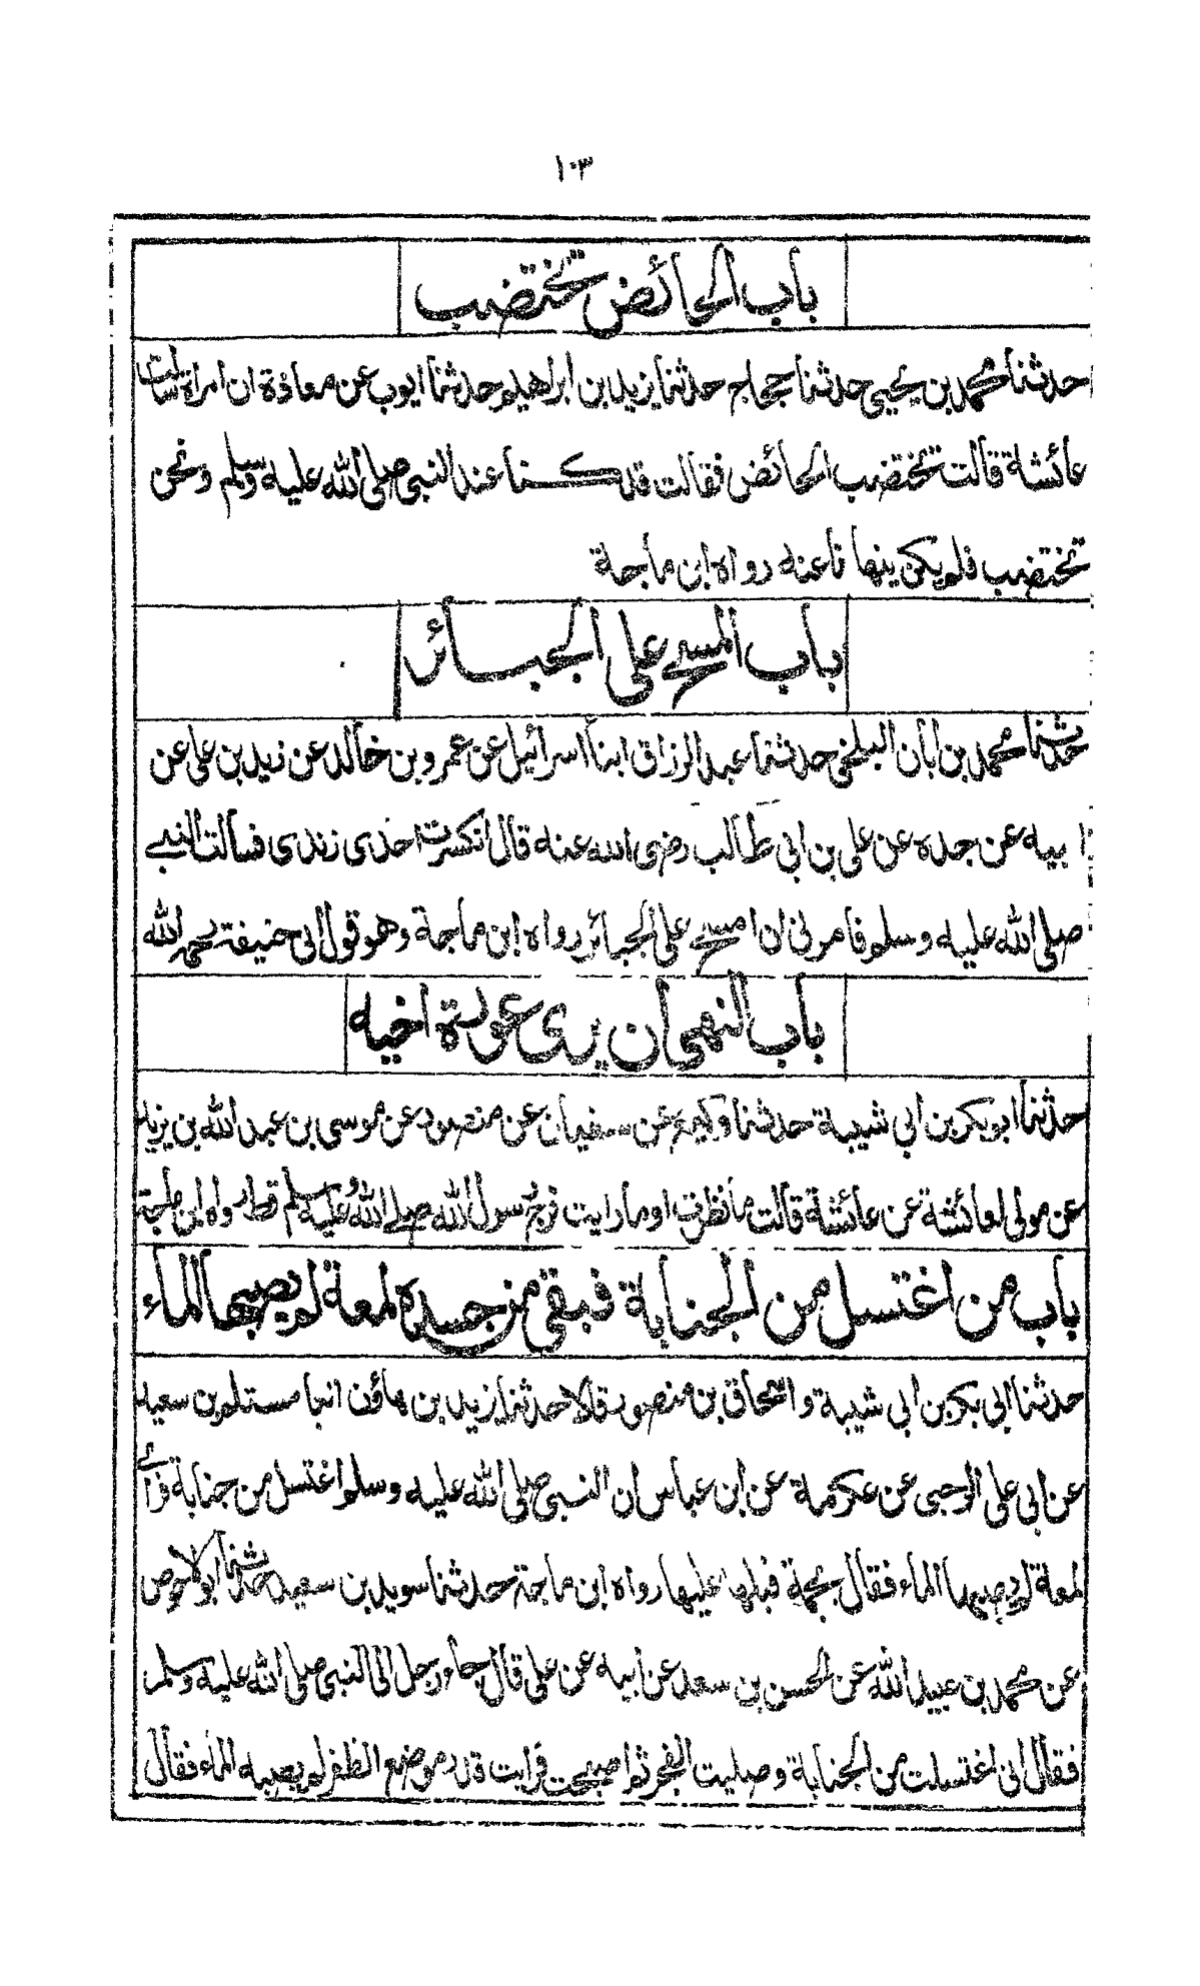 ١٠٣
باب الحائض تختضب
حدثنا محمد بن يحيى حدثنا حجاج حدثنا يزيد بن ابراهيم حدثنا ايوب عن معاذة ان امراة سالت
عائشة قالت تختضب الحائض فقالت قد كنا عند النبي صلى الله عليه وسلم ونحن
تختضب فلم يكن ينهانا عنه رواه ابن ماجة
باب المسح على الجبائر
حدثنا محمد بن ابان البلخي حدثنا عبد الرزاق ابنأ اسرائيل عن عمرو بن خالد عن زيد بن على عن
ابيه عن جده عن على بن ابي طالب رضى الله عنه قال انكسرت احدى زندى فسالت النبي
صلى الله عليه وسلم فامرنى ان امسح على الجبائر رواه ابن ماجة وهو قول ابى حنيفة رحمه الله
باب النهى ان يرى عورة اخيه
حدثنا ابو بكر بن ابي شيبة حدثنا وكيع عن سفيان عن منصور عن موسى بن عبد الله بن يزيد
عن مولى لعائشة عن عائشة قالت ما نظرت او ما رايت فرج رسول الله صلى الله عليه وسلم قط رواه ابن ماجة
باب من اغتسل من الجنابة فبقى من جسده لمعة لم يصبها الماء
حدثنا ابى بكر بن ابي شيبة واسحاق بن منصور قالا حدثنا يزيد بن هارون انبا مستلم بن سعيد
عن ابى على الرحبى عن عكرمة عن ابن عباس ان النبي صلى الله عليه وسلم اغتسل من جنابة فرأى
لمعة لم يصبها الماء فقال بجمة فبلها عليها رواه ابن ماجة حدثنا سويد بن سعيد حدثنا ابو الاحوص
عن محمد بن عبيد الله عن الحسن بن سعد عن ابيه عن على قال جاء رجل الى النبى صلى الله عليه وسلم
فقال انى اغتسلت من الجنابة وصليت الفجر ثم اصبحت فرايت قدر موضع الظفر لم يصبه الماء فقال